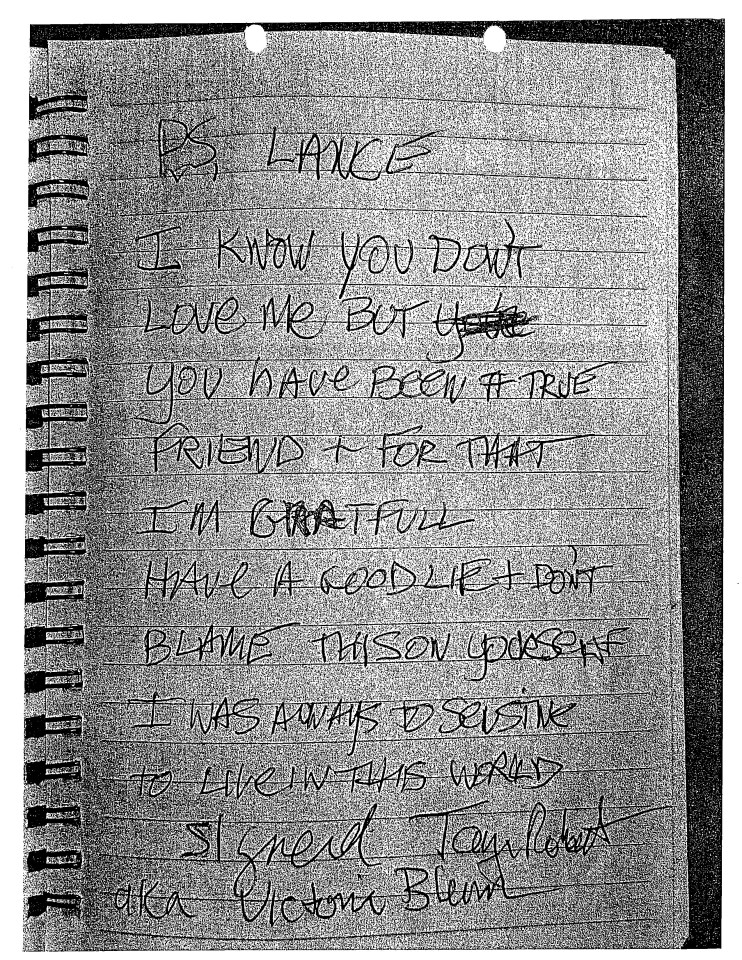 PS, LANCE
I KNOW YOU DON'T
LOVE ME BUT
YOU HAVE BEEN A TRUE
FRIEND + FOR THAT
I'M GRATFULL
HAVE A GOOD LIE + DON'T
BLAME THIS ON YOURSELF
I WAS ALWAYS TO SENSITIVE
TO LIVE IN THIS WORLD
Signerd
aka Victoria